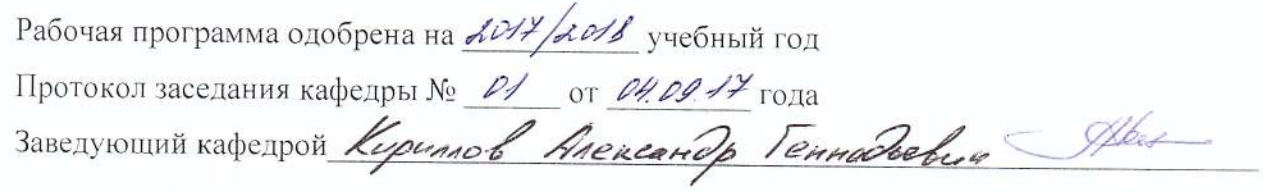 Рабочая программа одобрена на 2017/2018 учебный год
Протокол заседания кафедры № 01 от 04.09.17 года
Заведующий кафедрой Кириллов Александр Геннадьевич